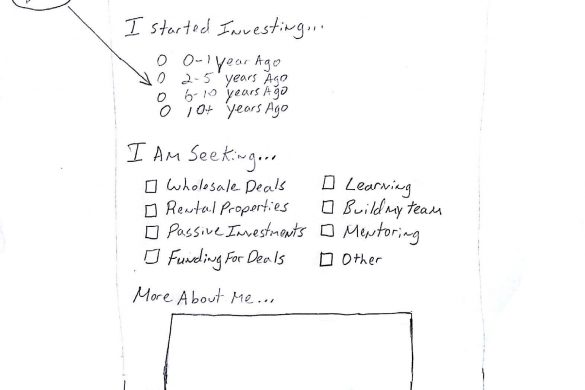 I started Investing...
0-1 year Ago
2-5 years Ago
6-10 years Ago
10+ years Ago
I Am Seeking...
Wholesale Deals
Learning
Rental Properties
Build my team
Passive Investments
Mentoring
Funding For Deals
Other
More About Me...